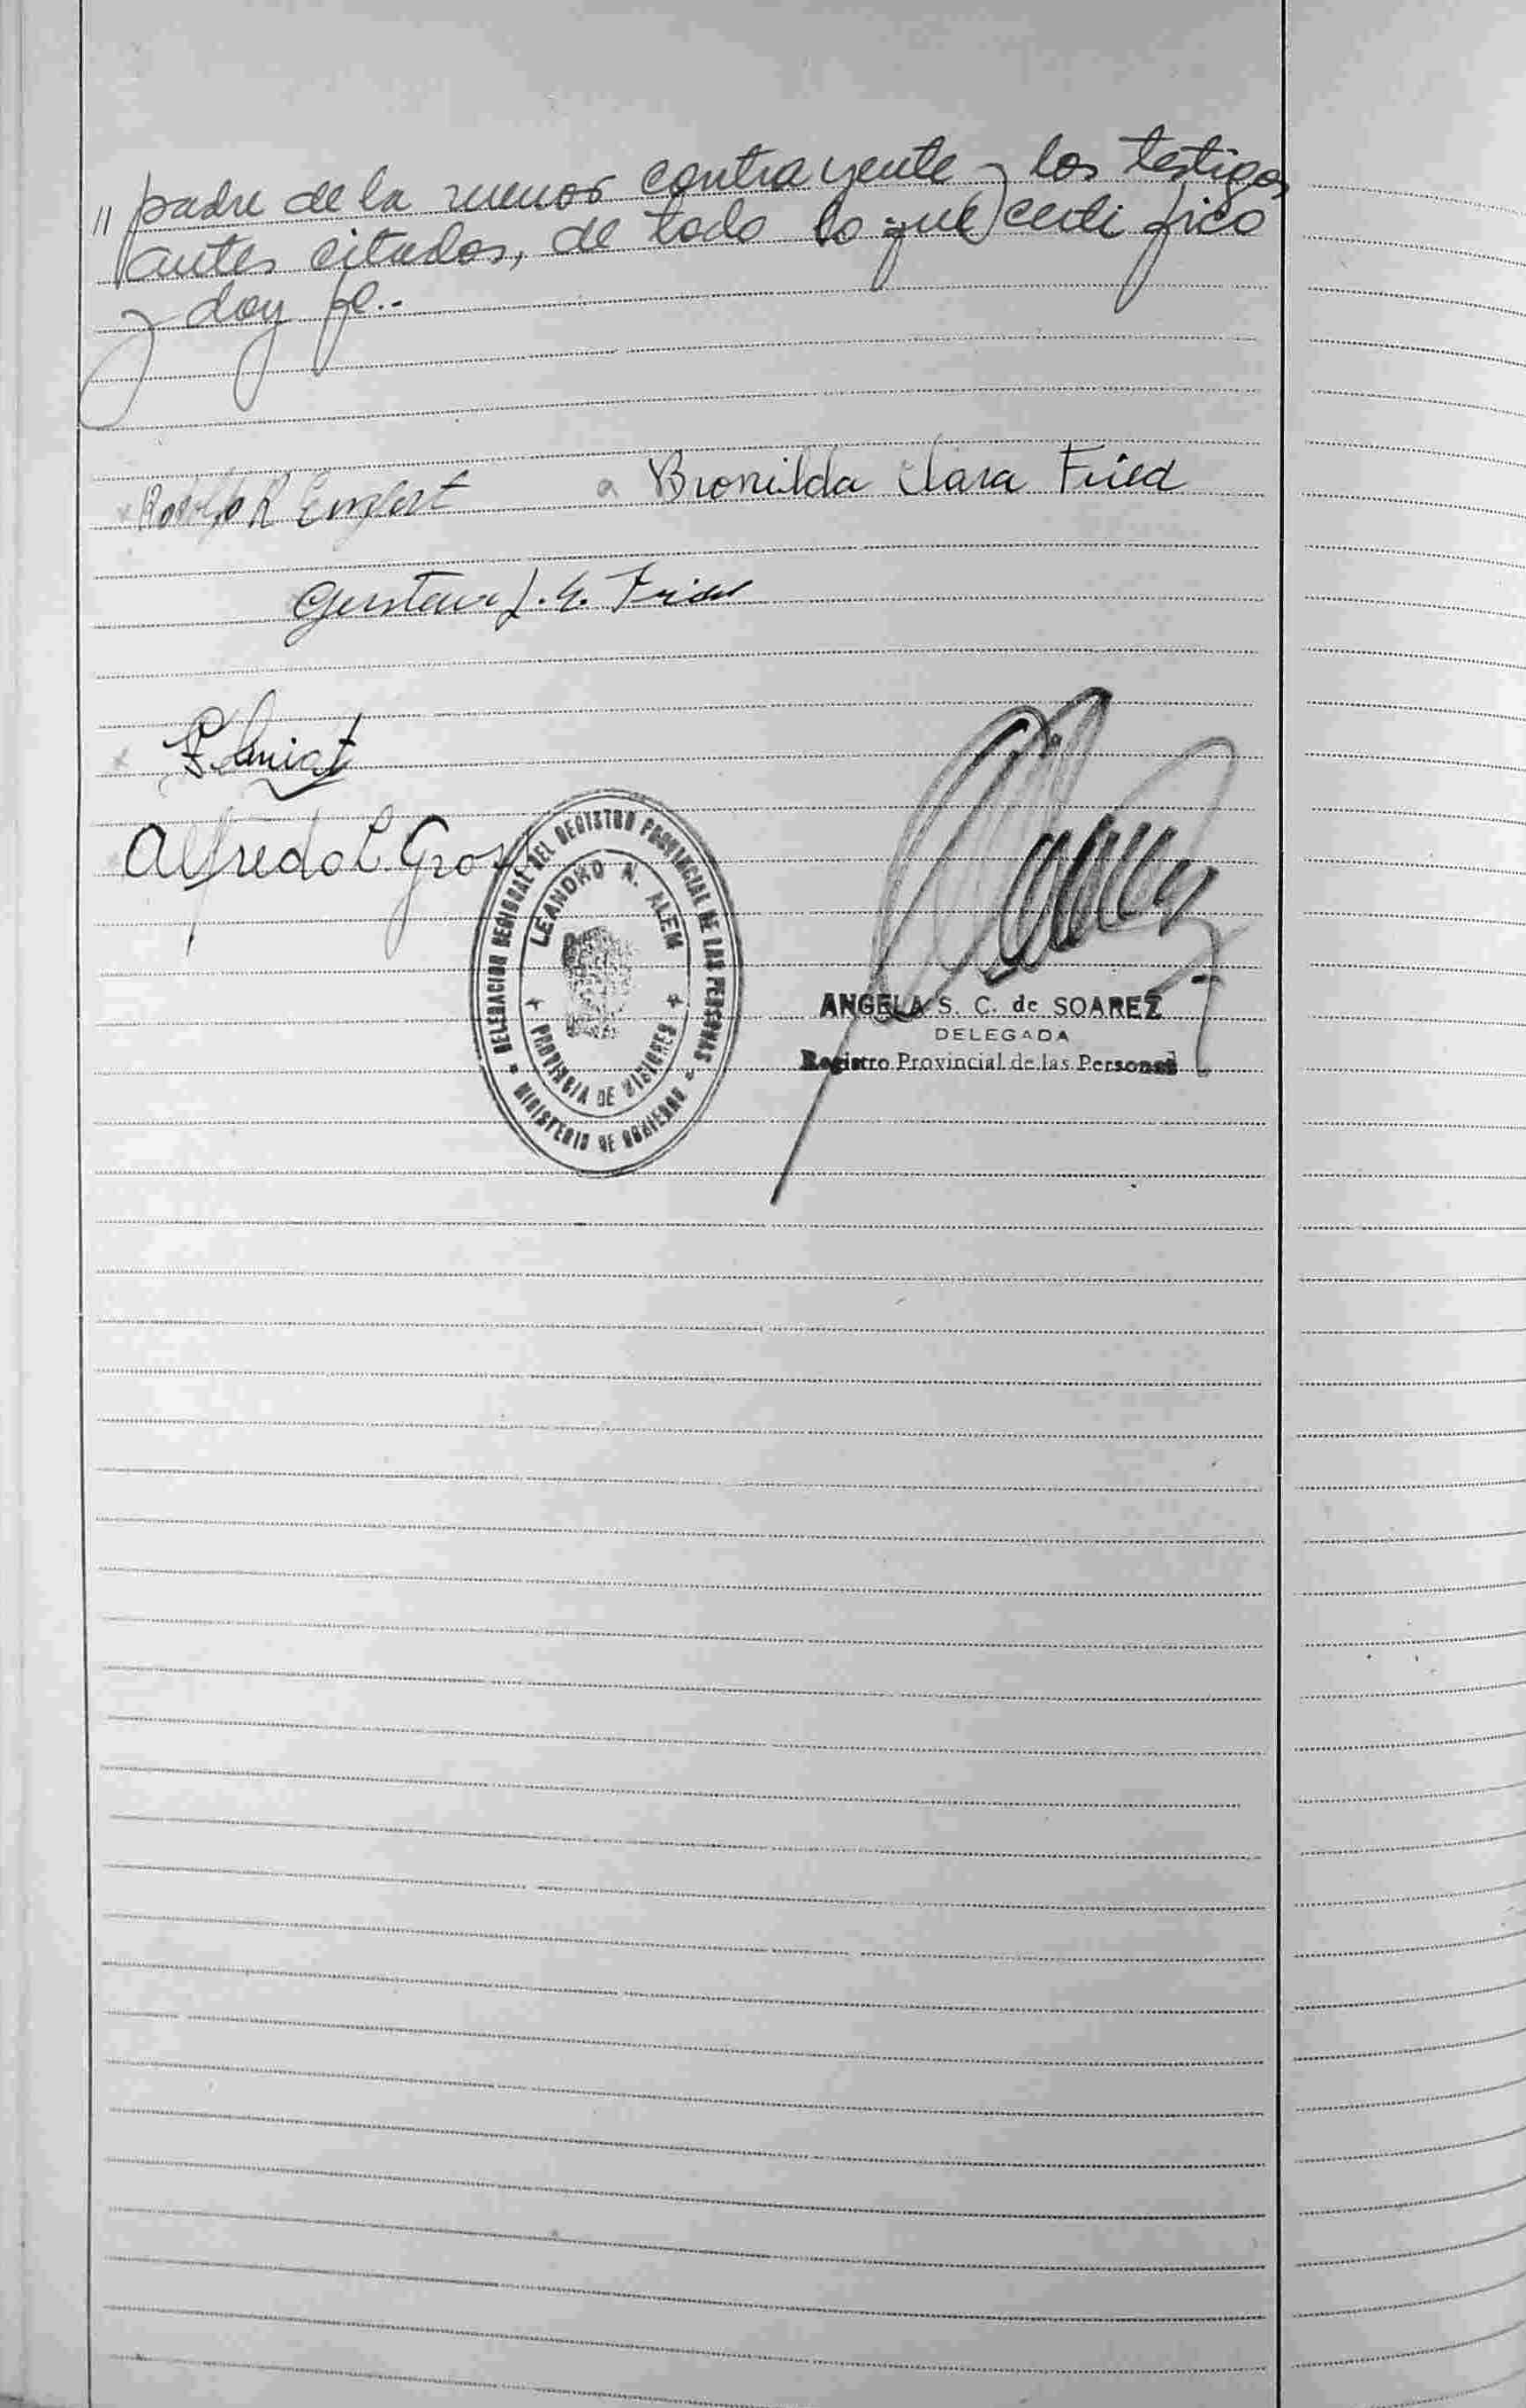 " padre de la menor contrayente y los testigos
antes citados, de todo lo que certifico
y doy fe.-
Bronilda Clara Fried
Gustavo J. E. Fried
Alfredo L. Gross
DELEGACION REGIONAL DEL REGISTRO PROVINCIAL DE LAS PERSONAS
LEANDRO N. ALEM
PROVINCIA DE MISIONES
MINISTERIO DE GOBIERNO
ANGELA S. C. de SOAREZ
DELEGADA
Registro Provincial de las Personas